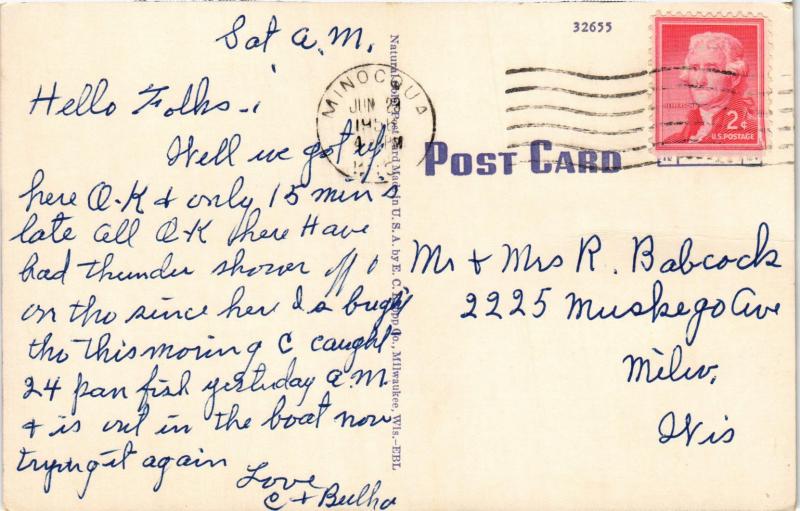 Sat A.M.
Hello Folks -
Well we got up
here O.K & only 15 mins
late all O-K here Have
had thunder shower off &
on tho since here & is bright
tho this moring C caught
24 pan fish yesterday A.M.
& is out in the boat now
trying it again
Love
C & Beulha
Natural Color Post Card Made in U.S.A. by E. C. Kropp Co., Milwaukee, Wis.—EBL
32655
MINOCQUA
JUN
195
POST CARD
2¢
U.S. POSTAGE
Mr & Mrs R. Babcock
2225 Muskego Ave
Milw,
Wis